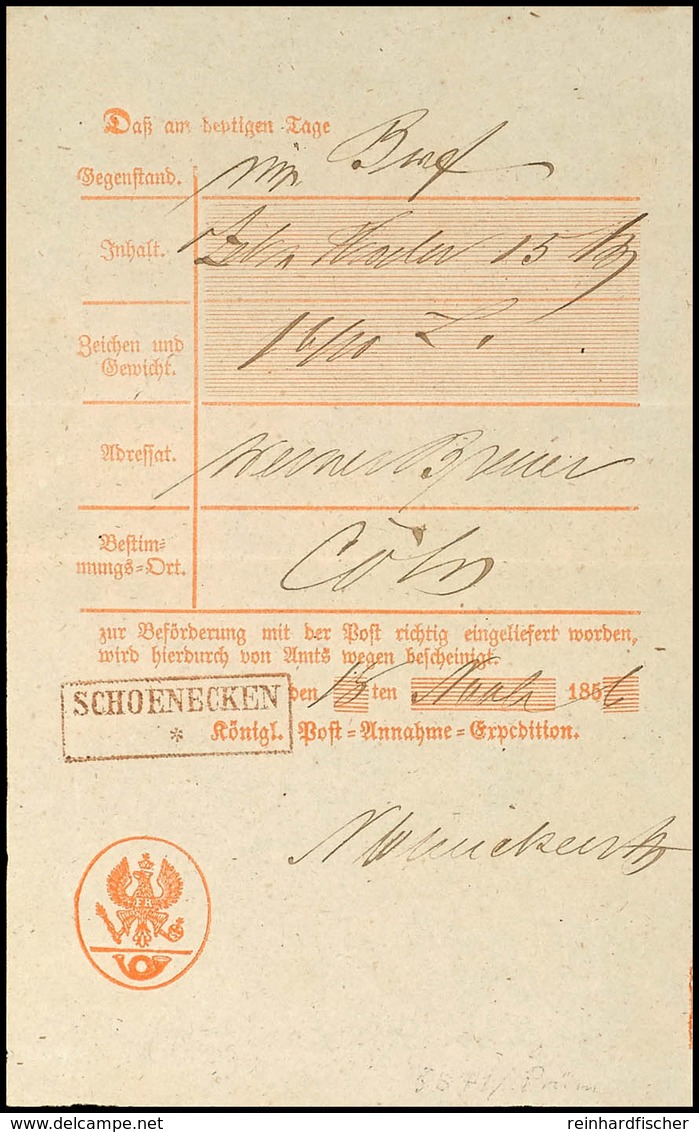 Daß am heutigen Tage
Gegenstand. ein Brief
Inhalt. Zehn Thaler 15
Zeichen und
Gewicht. 1 6/10 L.
Adressat. Werner Breuer
Bestim-
mungs-Ort. Cöln
zur Beförderung mit der Post richtig eingeliefert worden,
wird hierdurch von Amts wegen bescheinigt.
SCHOENECKEN
den 18 ten 1856
*
Königl. Post-Annahme-Expedition.
FR
Prüm
reinhardfischer
www.delcampe.net